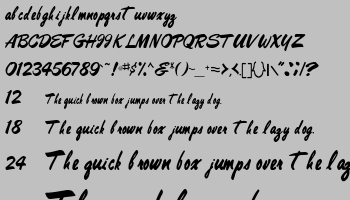 abcdefghijklmnopqrst uvwxyz
ABCDEFGHIJKLMNOPQRSTUVWXYZ
0123456789~!#$%^&*()-_+=><.[]{}|\":;/?
12 The quick brown box jumps over the lazy dog.
18 The quick brown box jumps over The lazy dog.
24 The quick brown box jumps over The laz